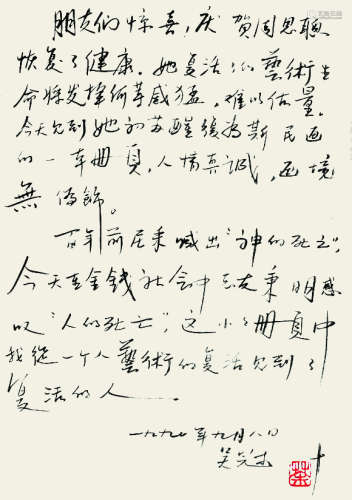 朋友们惊喜，庆贺周思聪
恢复了健康。她复活了的艺術生
命将发挥何等威猛，难以估量。
今天見到她初苏醒後為斯民画
的一本冊頁，人情真诚，画境
無伪飾。
百年前尼采喊出“神的死亡”，
今天在金錢社会中
叹“人的死亡”，这小小冊頁中
我從一个人藝術的复活見到了
复活的人——。
一九九〇年九月八日